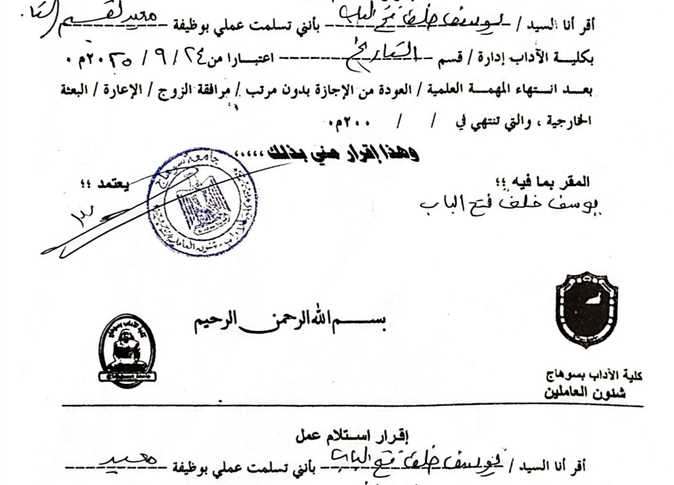 أقر أنا السيد / يوسف خلف فتح الباب بأنني تسلمت عملي بوظيفة معيد بقسم
بكلية الآداب إدارة / قسم التاريخ اعتبارا من ٢٤ / ٩ / ٢٠٢٥م ٠
بعد انتهاء المهمة العلمية / العودة من الإجازة بدون مرتب / مرافقة الزوج / الإعارة / البعثة
الخارجية ، والتي تنتهي في / / ٢٠٠م٠
وهذا إقرار مني بذلك ،،،،،
المقر بما فيه ؛؛ يعتمد ؛؛
يوسف خلف فتح الباب
جامعة سوهاج
بسم الله الرحمن الرحيم
كلية الآداب بسوهاج
كلية الآداب بسوهاج
شئون العاملين
إقرار استلام عمل
أقر أنا السيد / يوسف خلف فتح الباب بأنني تسلمت عملي بوظيفة معيد